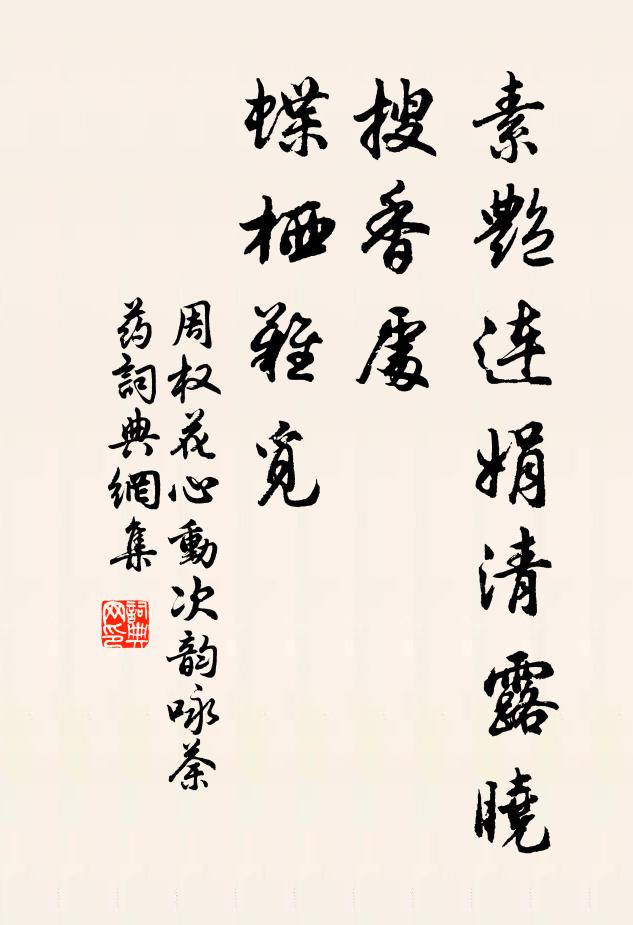 素艷連娟清露曉
搜香處
蝶栖難覓
周权花心動次韵咏茶
药詞典網集
詞典
网印